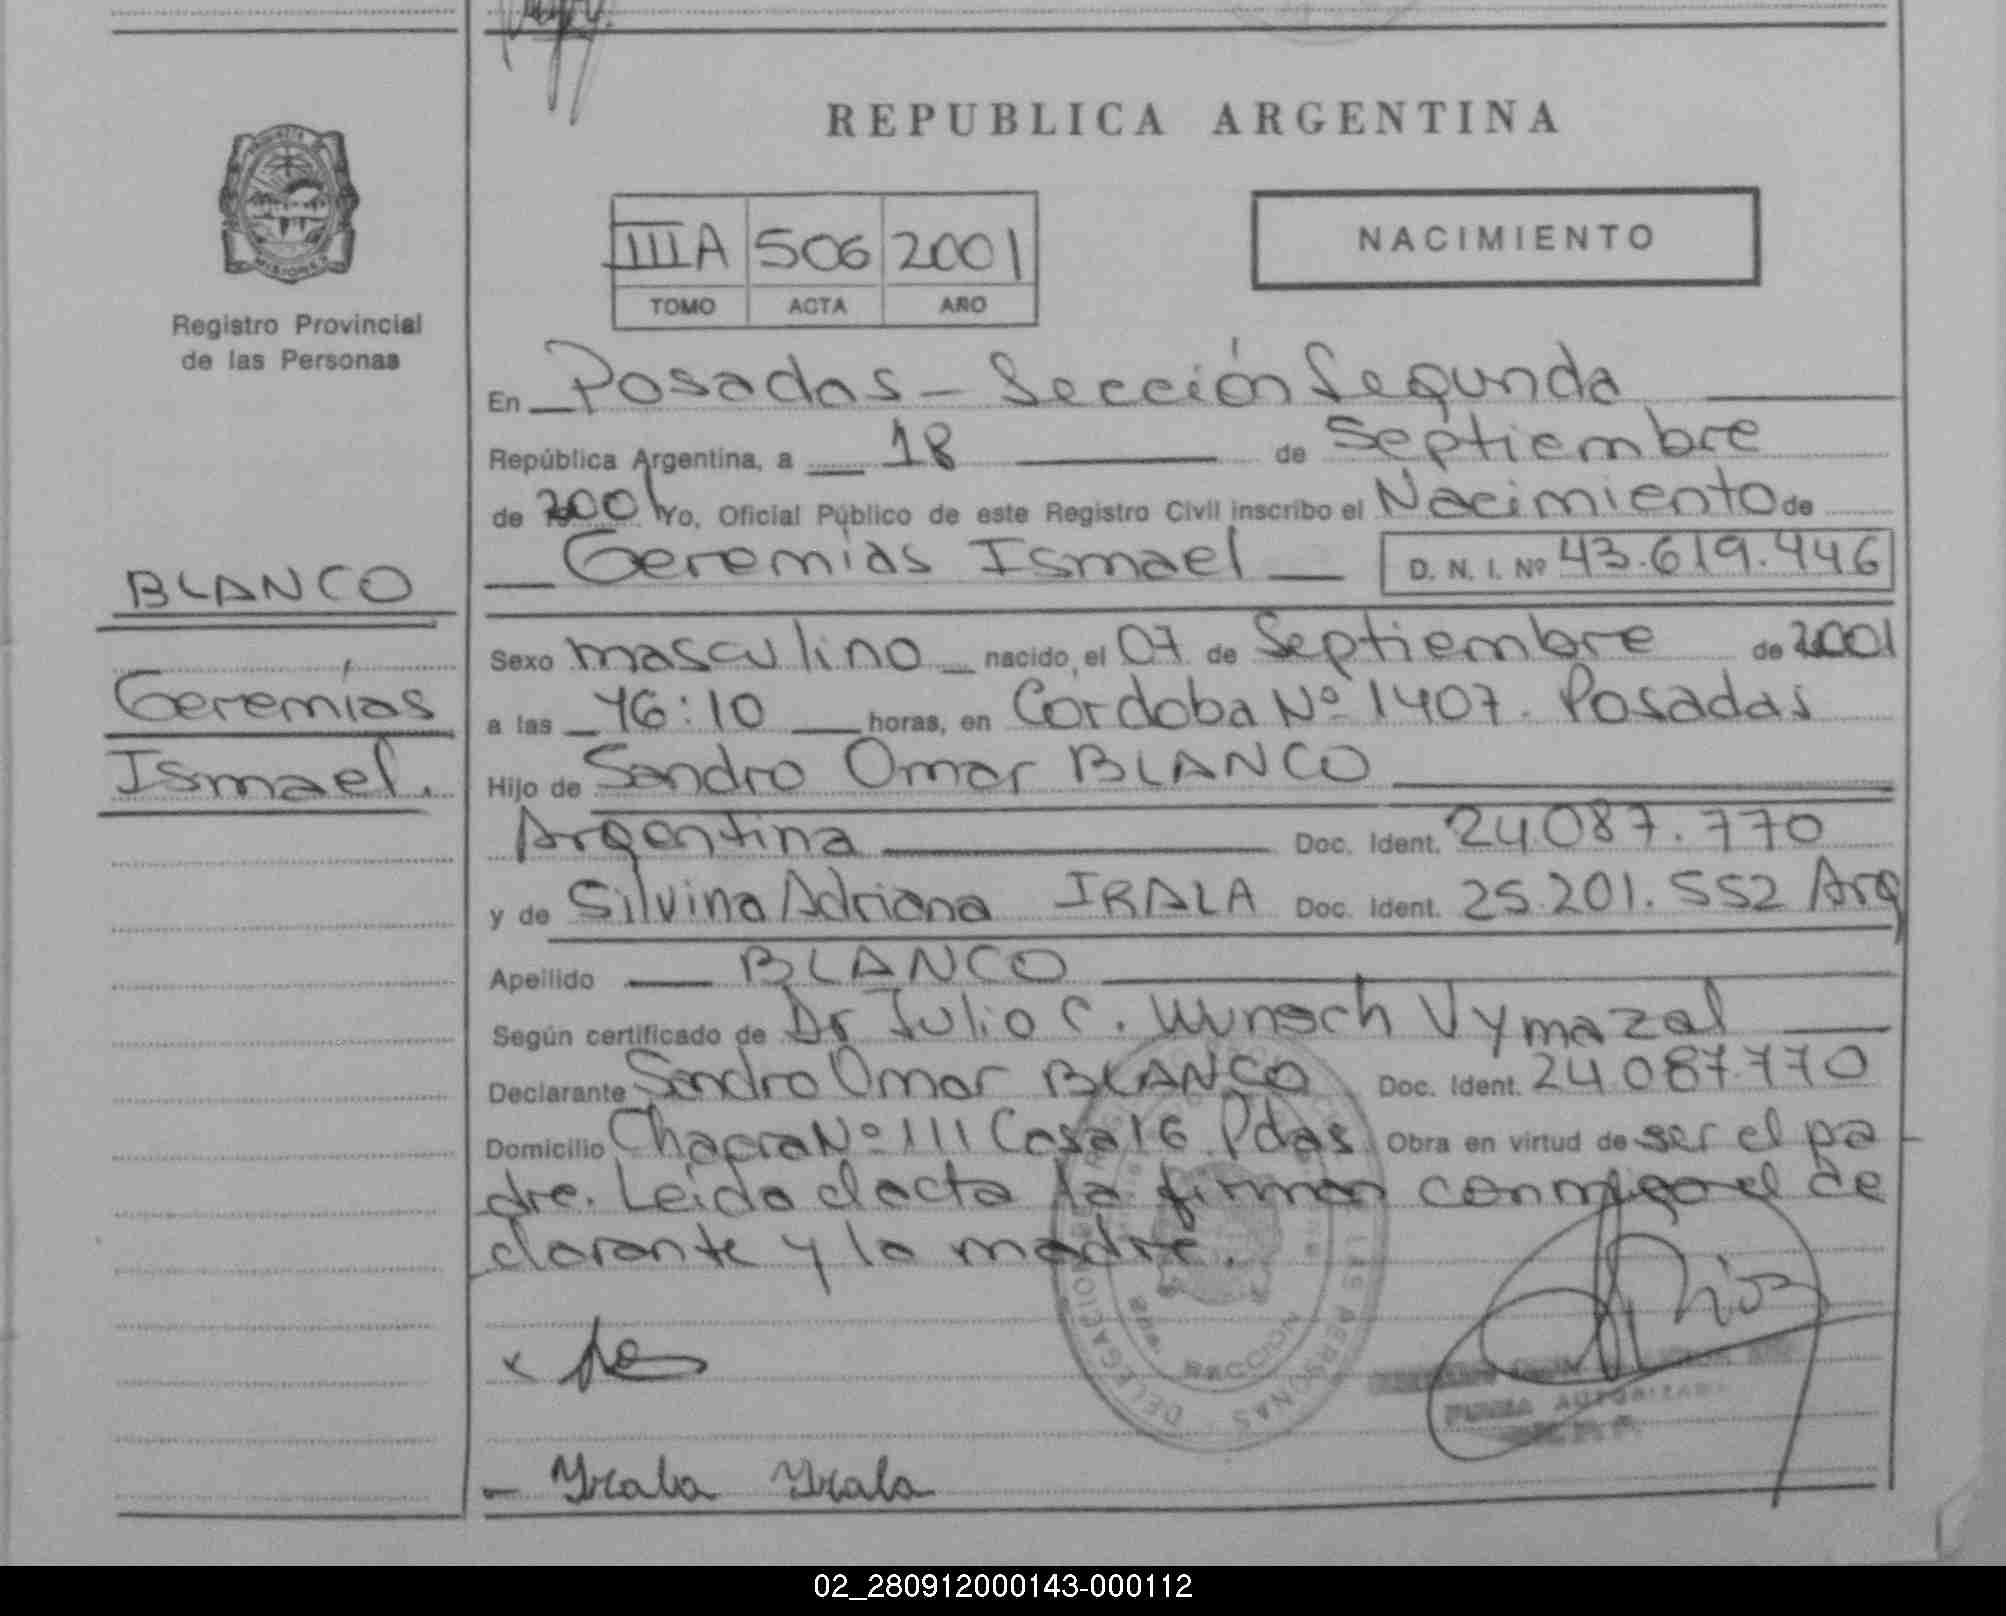 REPUBLICA ARGENTINA
MISIONES
Registro Provincial
de las Personas
IIIA 506 2001
TOMO ACTA AÑO
NACIMIENTO
En Posadas - Sección Segunda
República Argentina, a 18 de Septiembre
de 2001 Yo, Oficial Público de este Registro Civil inscribo el Nacimiento de
Geremias Ismael D. N. I. Nº 43.619.446
BLANCO
Geremías
Ismael.
Sexo masculino nacido el 07 de Septiembre de 2001
a las 16:10 horas, en Cordoba Nº 1407. Posadas
Hijo de Sandro Omar BLANCO
Argentina Doc. Ident. 24.087.770
y de Silvina Adriana IRALA Doc. Ident. 25.201.552 Arg
Apellido BLANCO
Según certificado de Dr Julio C. Wunsch Vymazal
Declarante Sandro Omar BLANCO Doc. Ident. 24.087.770
Domicilio Chacra Nº 111 Casa 16 Pdas Obra en virtud de ser el pa
dre. Leida el acta la firman conmigo el de
clarante y la madre.
DELEGACION LAS PERSONAS
SECCION
FIRMA AUTORIZADA
x
- Irala Irala
02_280912000143-000112